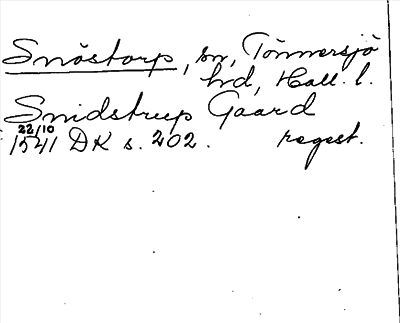 Snöstorp, sn, Tönnersjö
hd, Hall. l.
Snidstrup Gaard
22/10
1541 DK s. 202. regest.